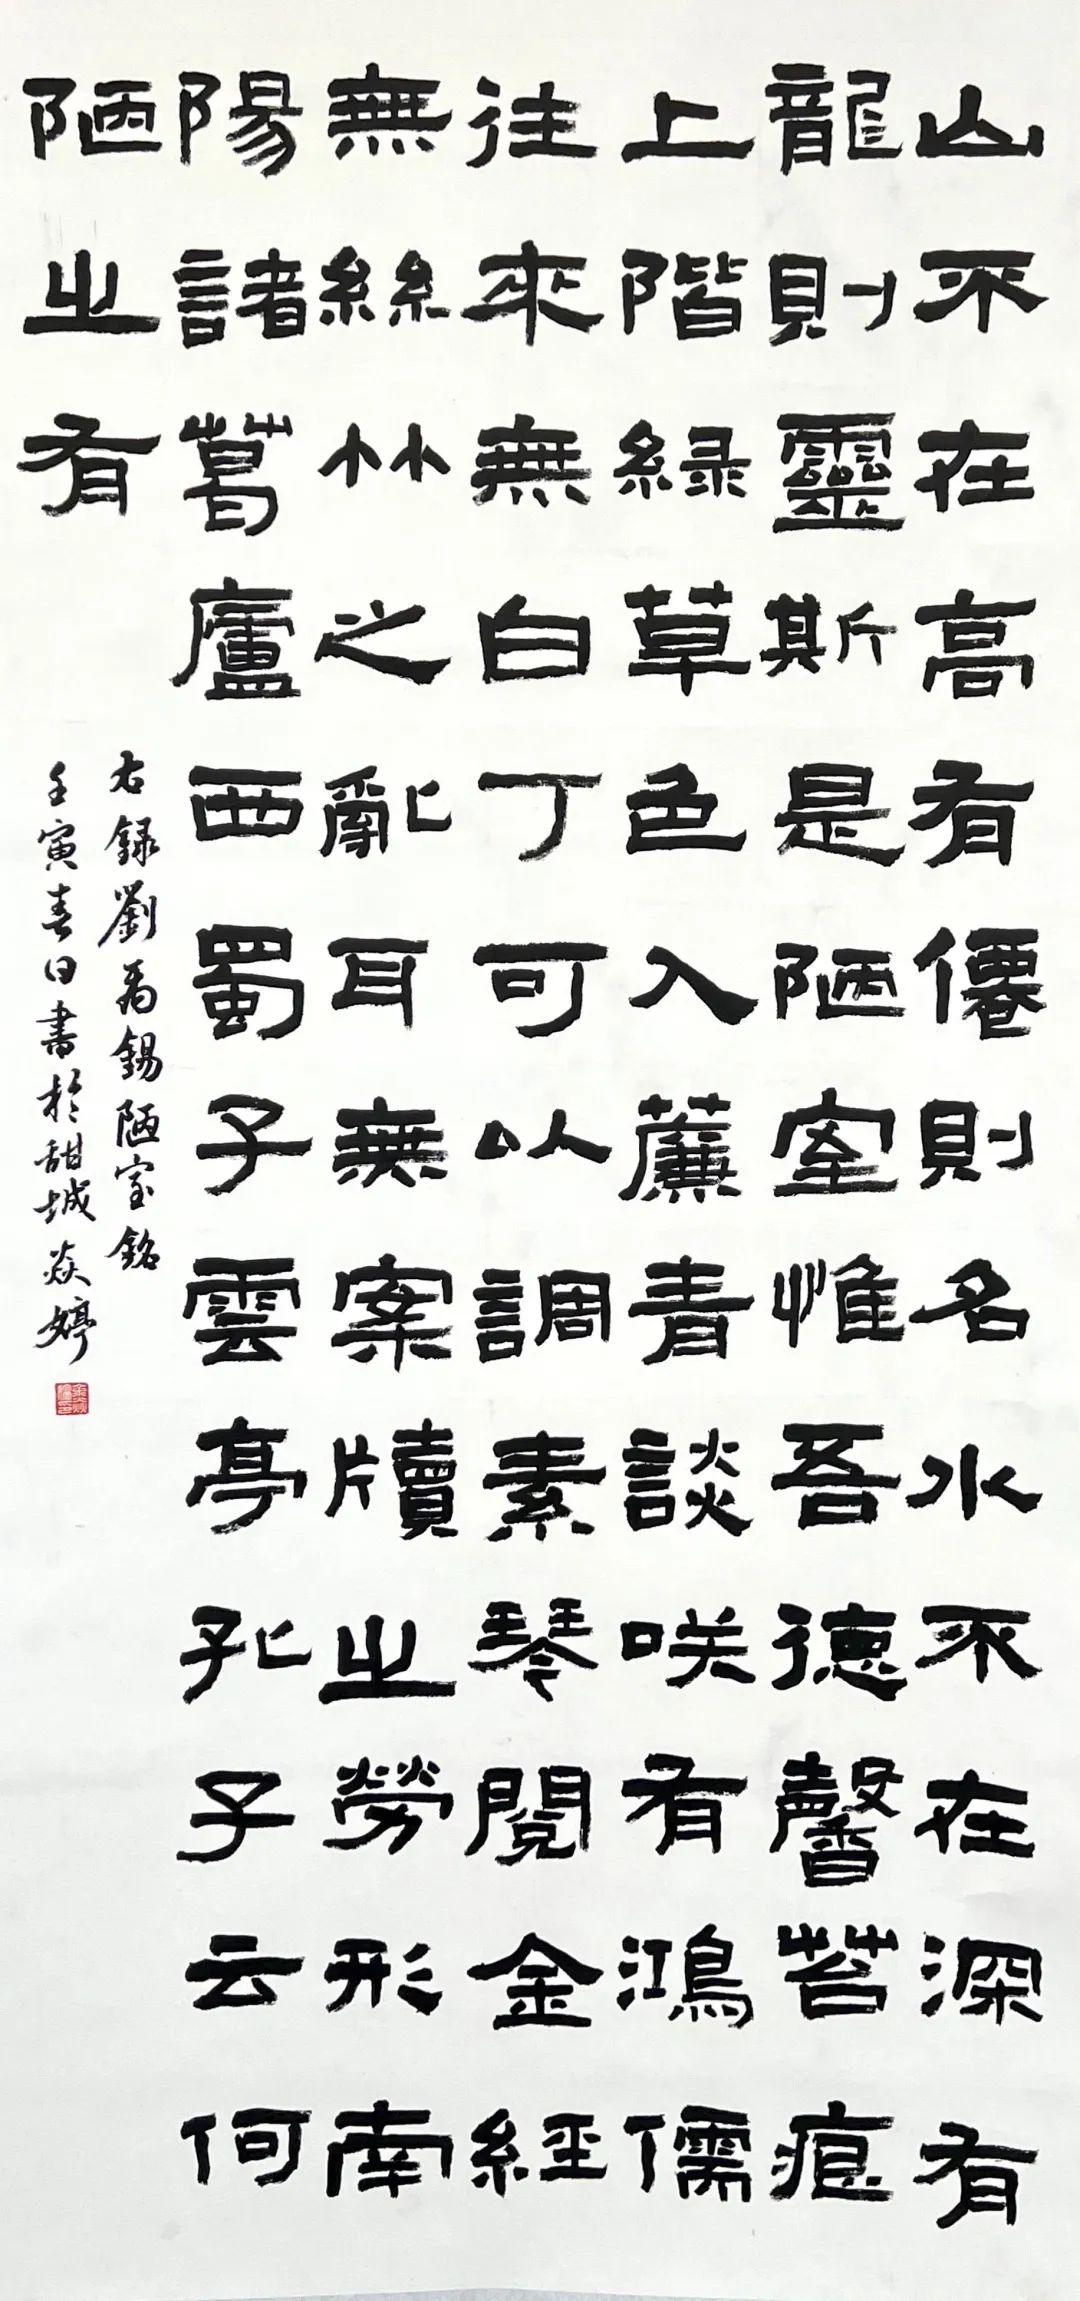 山不在高有僊則名水不在深有
龍則靈斯是陋室惟吾德馨苔痕
上階緑草色入薕青談咲有鴻儒
往來無白丁可以調素琴閱金經
無絲竹之亂耳無案牘之勞形南
陽諸葛廬西蜀子雲亭孔子云何
陋之有
右録劉禹錫陋室銘
壬寅春日書於甜城焱婷